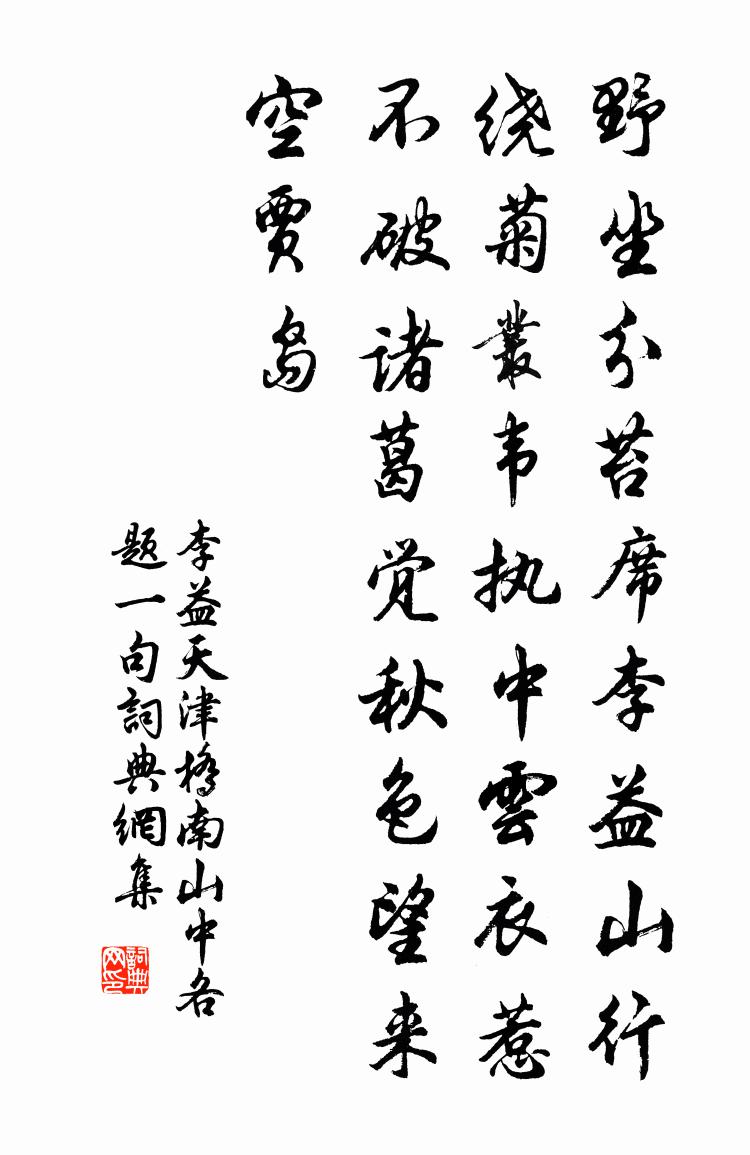 野坐分苔席李益山行
绕菊叢韦执中雲衣惹
不破诸葛觉秋色望来
空贾岛
李益天津橋南山中各
题一句詞典網集
詞典网印